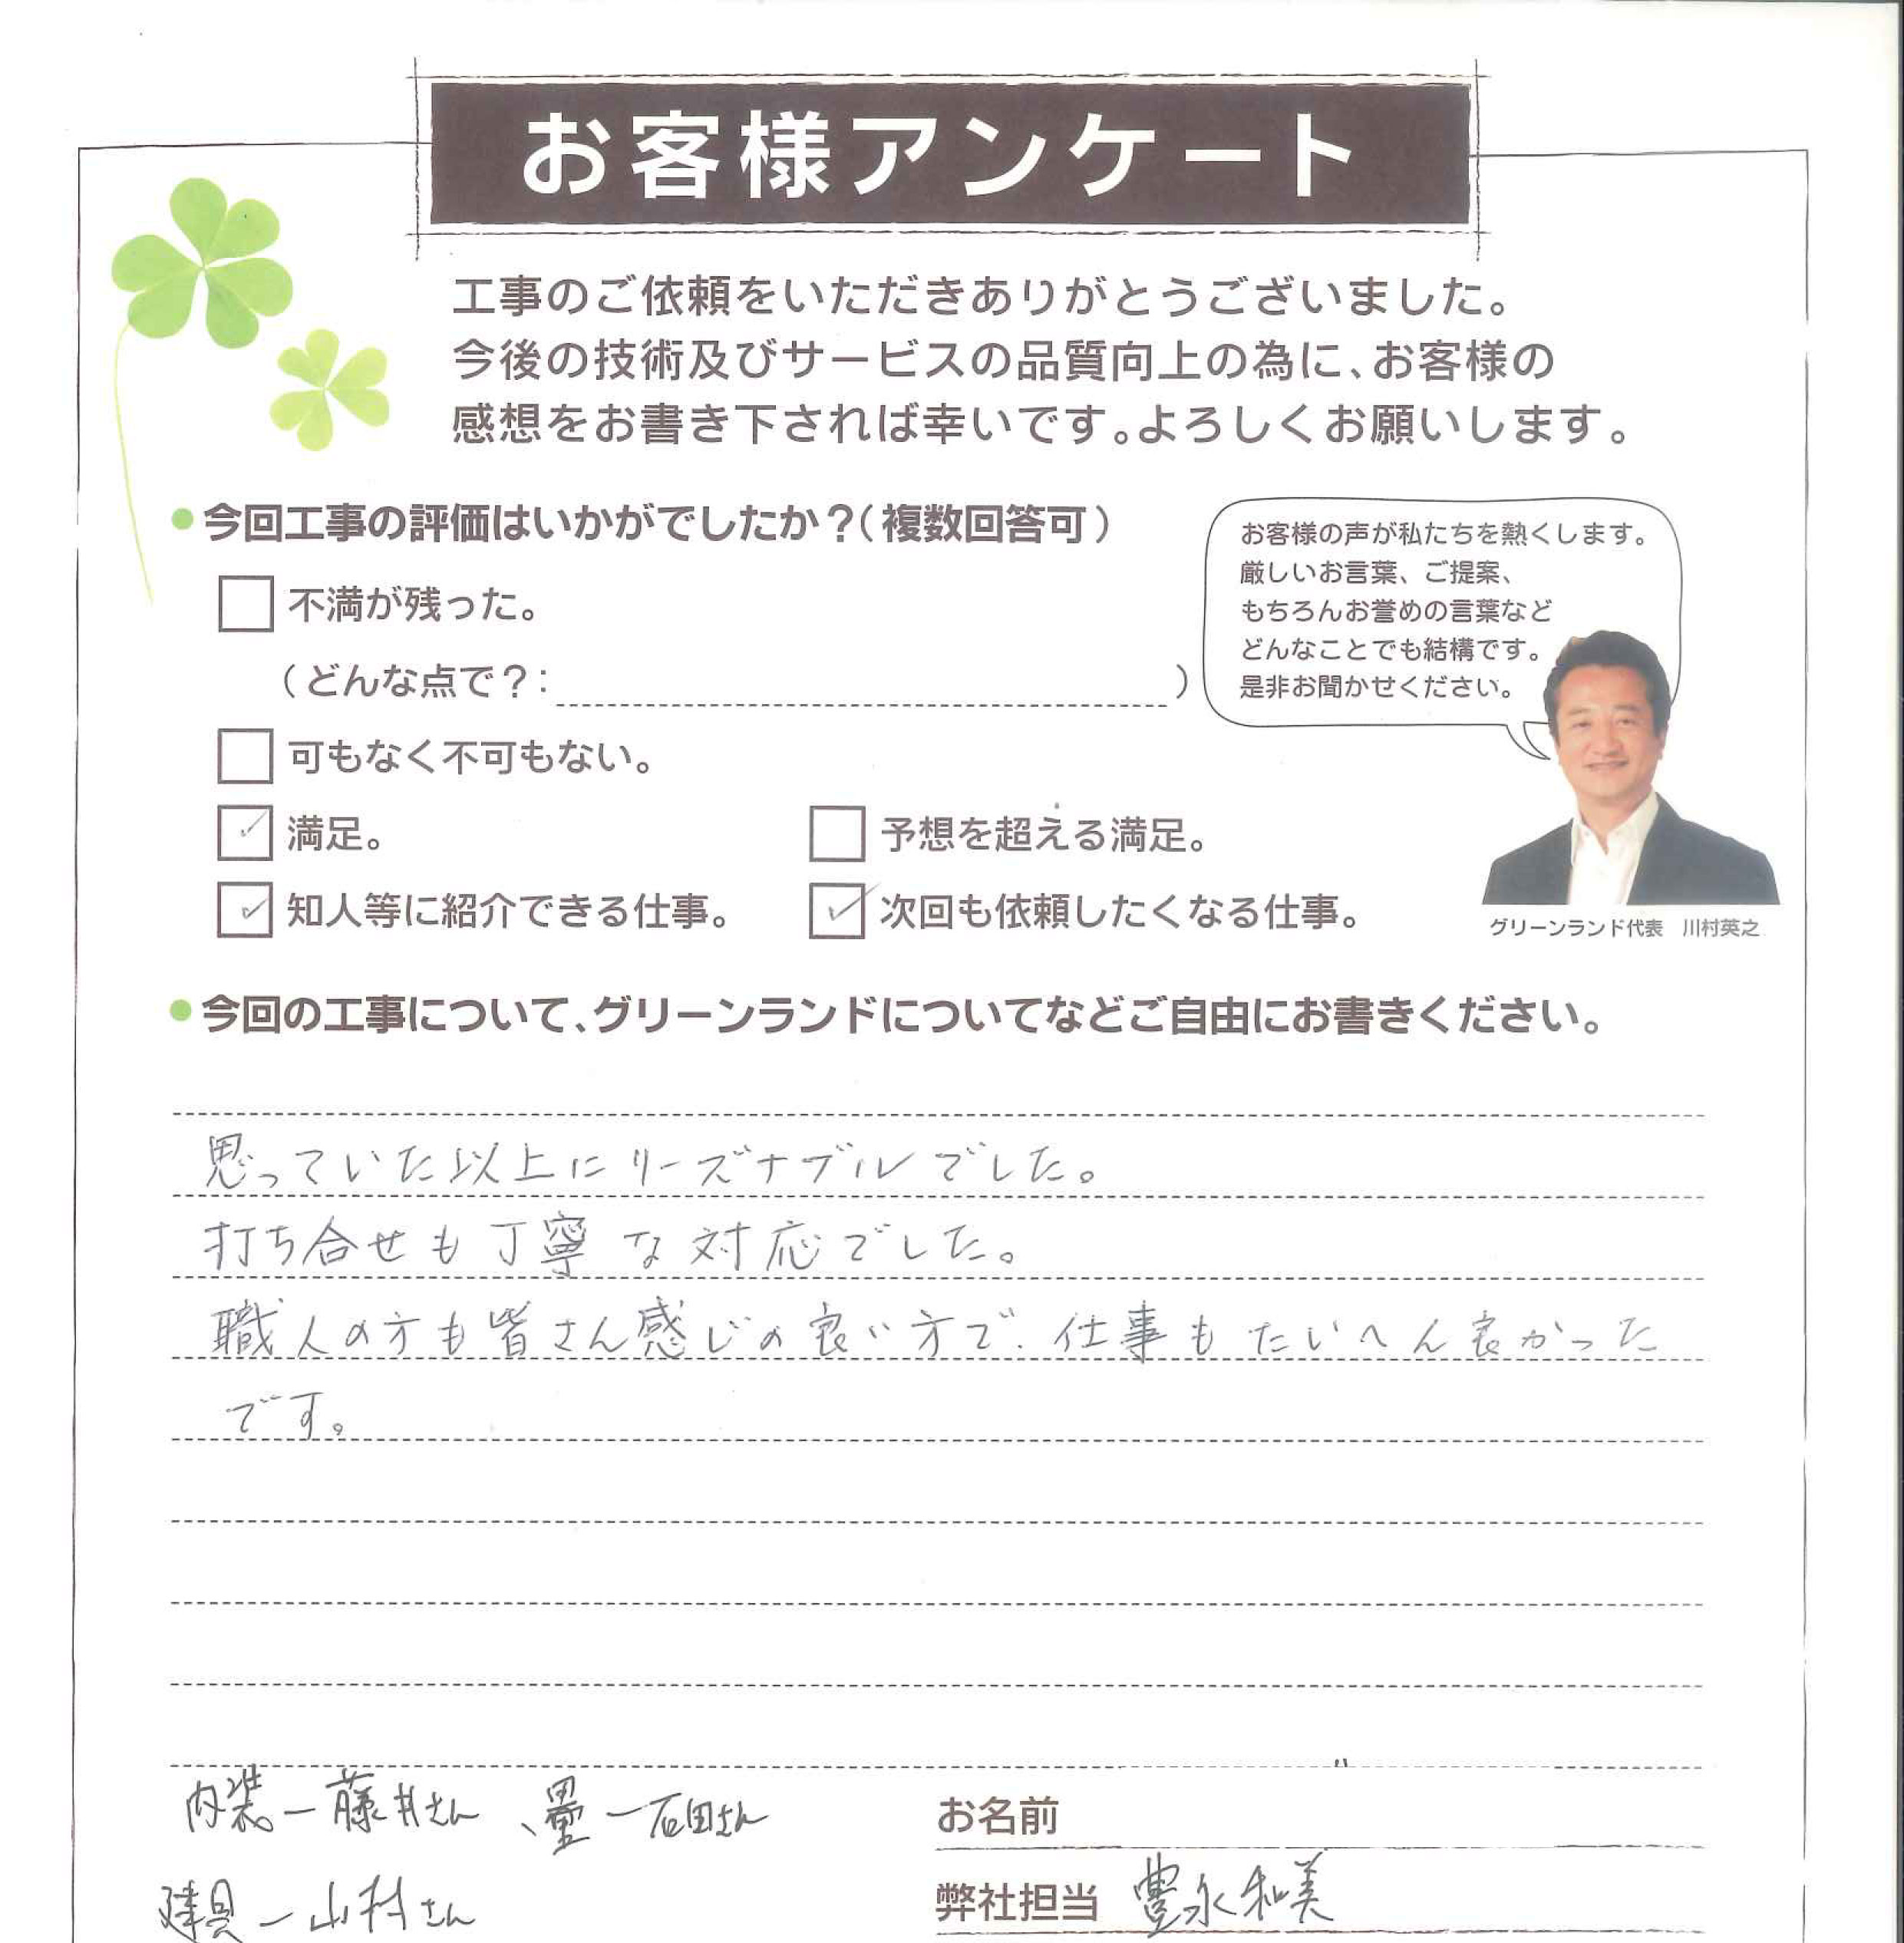 お客様アンケート
工事のご依頼をいただきありがとうございました。
今後の技術及びサービスの品質向上の為に、お客様の
感想をお書き下されば幸いです。よろしくお願いします。
●今回工事の評価はいかがでしたか？(複数回答可)
不満が残った。
(どんな点で？: )
可もなく不可もない。
✓ 満足。
予想を超える満足。
✓ 知人等に紹介できる仕事。
✓ 次回も依頼したくなる仕事。
お客様の声が私たちを熱くします。
厳しいお言葉、ご提案、
もちろんお誉めの言葉など
どんなことでも結構です。
是非お聞かせください。
グリーンランド代表 川村英之
●今回の工事について、グリーンランドについてなどご自由にお書きください。
思っていた以上にリーズナブルでした。
打ち合せも丁寧な対応でした。
職人の方も皆さん感じの良い方で、仕事もたいへん良かった
です。
内装ー藤井さん、畳ー石田さん
建具ー山村さん
お名前
弊社担当 豊永和美